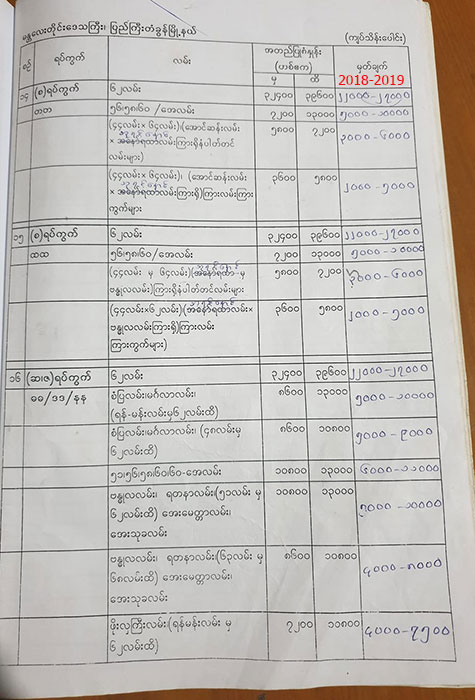 မန္တလေးတိုင်းဒေသကြီး၊ ပြည်ကြီးတံခွန်မြို့နယ်
(ကျပ်သိန်းပေါင်း)
စဉ် ရပ်ကွက် လမ်း အတည်ပြုစံနှုန်း (ဟစ်ဧက) မှတ်ချက်
မှ ထိ 2018-2019
၁၄ (စ)ရပ်ကွက် ၆၂လမ်း ၃၂၄၀၀ ၃၉၆၀၀ ၂၂၀၀၀-၂၇၀၀၀
တတ ၅၆၊၅၈၊၆၀ /အေလမ်း ၇၂၀၀ ၁၃၀၀၀ ၅၀၀၀-၁၀၀၀၀
(၄၄လမ်း× ၆၄လမ်း)၊(အောင်ဆန်းလမ်း ၅၈၀၀ ၇၂၀၀ ၃၀၀၀-၆၀၀၀
× အနော်ရထာလမ်းကြားရှိနံပါတ်တင်
လမ်းများ)
(၄၄လမ်း× ၆၄လမ်း)၊ (အောင်ဆန်းလမ်း ၃၆၀၀ ၅၈၀၀ ၂၀၀၀-၅၀၀၀
× အနော်ရထာလမ်းကြားရှိ)ကြားလမ်းကြား
ကွက်များ
၁၅ (စ)ရပ်ကွက် ၆၂လမ်း ၃၂၄၀၀ ၃၉၆၀၀ ၂၂၀၀၀-၂၇၀၀၀
ထထ ၅၆၊၅၈၊၆၀/အေလမ်း ၇၂၀၀ ၁၃၀၀၀ ၅၀၀၀-၁၀၀၀၀
(၄၄လမ်း မှ ၆၄လမ်း)(အနော်ရထာ-မှ ၅၈၀၀ ၇၂၀၀ ၃၀၀၀-၆၀၀၀
ဗန္ဓုလလမ်း)ကြားရှိနံပါတ်တင်လမ်းများ
(၄၄လမ်း×၆၂လမ်း)(အနော်ရထာလမ်း× ၃၆၀၀ ၅၈၀၀ ၂၀၀၀-၅၀၀၀
ဗန္ဓုလလမ်းကြားရှိ)ကြားလမ်း
ကြားကွက်များ)
၁၆ (ဆ၊ဇ)ရပ်ကွက် ၆၂လမ်း ၃၂၄၀၀ ၃၉၆၀၀ ၂၂၀၀၀-၂၇၀၀၀
ဓဓ/ဒဒ/နန စံပြလမ်း၊မင်္ဂလာလမ်း၊ ၈၆၀၀ ၁၃၀၀၀ ၅၀၀၀-၁၀၀၀၀
(ရန်-မန်းလမ်းမှ၆၂လမ်းထိ)
စံပြလမ်း၊မင်္ဂလာလမ်း၊ (၄၈လမ်းမှ ၈၆၀၀ ၁၀၈၀၀ ၅၀၀၀-၉၀၀၀
၆၂လမ်းထိ)
၅၁၊၅၆၊၅၈၊၆၀၊၆၀-အေလမ်း ၁၀၈၀၀ ၁၃၀၀၀ ၆၀၀၀-၁၁၀၀၀
ဗန္ဓုလလမ်း၊ ရတနာလမ်း(၅၁လမ်း မှ ၁၀၈၀၀ ၁၃၀၀၀ ၇၀၀၀-၁၀၀၀၀
၆၂လမ်းထိ) အေးမေတ္တာလမ်း၊
အေးသုခလမ်း
ဗန္ဓုလလမ်း၊ ရတနာလမ်း(၆၃လမ်း မှ ၈၆၀၀ ၁၀၈၀၀ ၄၀၀၀-၈၀၀၀
၆၈လမ်းထိ) အေးမေတ္တာလမ်း၊
အေးသုခလမ်း
ဖိုးလှကြီးလမ်း(ရန်မန်းလမ်း မှ ၇၂၀၀ ၁၀၈၀၀ ၄၀၀၀-၇၅၀၀
၆၂လမ်းထိ)